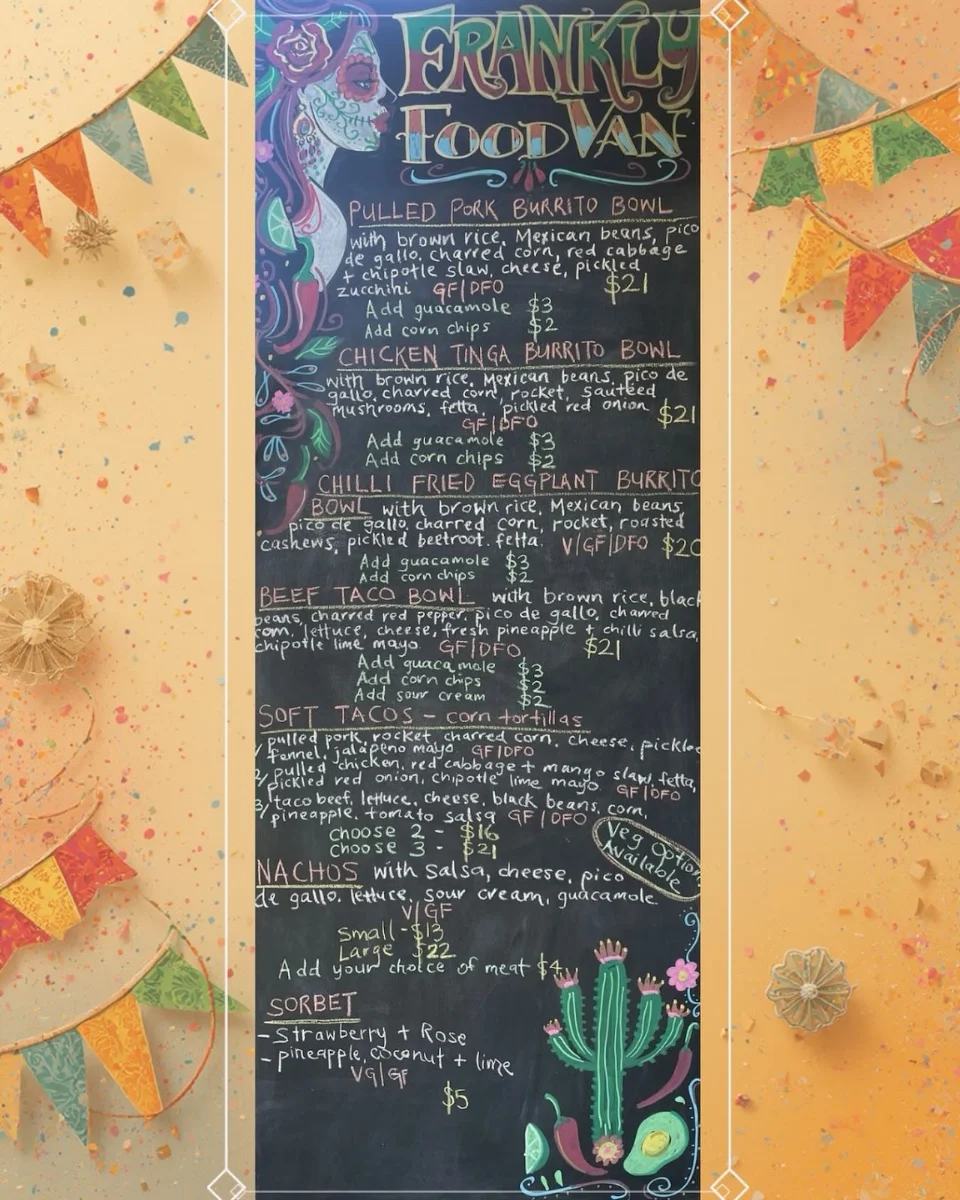 FRANKLY
FOOD VAN
PULLED PORK BURRITO BOWL
with brown rice, Mexican beans, pico
de gallo, charred corn, red cabbage
+ chipotle slaw, cheese, pickled
zucchini GF|DFO $21
Add guacamole $3
Add corn chips $2
CHICKEN TINGA BURRITO BOWL
with brown rice, Mexican beans, pico de
gallo, charred corn, rocket, sauteed
mushrooms, fetta, pickled red onion $21
GF|DFO
Add guacamole $3
Add corn chips $2
CHILLI FRIED EGGPLANT BURRITO
BOWL with brown rice, Mexican beans,
pico de gallo, charred corn, rocket, roasted
cashews, pickled beetroot. fetta. V|GF|DFO $20
Add guacamole $3
Add corn chips $2
BEEF TACO BOWL with brown rice, black
beans, charred red pepper, pico de gallo, charred
corn, lettuce, cheese, fresh pineapple + chilli salsa,
chipotle lime mayo GF|DFO $21
Add guacamole $3
Add corn chips $2
Add sour cream $2
SOFT TACOS - corn tortillas
pulled pork, rocket, charred corn, cheese, pickle
fennel, jalapeno mayo GF|DFO
2/ pulled chicken, red cabbage + mango slaw, fetta,
pickled red onion, chipotle lime mayo. GF|DFO
3/ taco beef, lettuce, cheese, black beans, corn,
pineapple, tomato salsa GF|DFO
choose 2 - $16
choose 3 - $21
Veg Option
Available
NACHOS with salsa, cheese, pico
de gallo, lettuce, sour cream, guacamole.
V|GF
Small - $13
Large $22
Add your choice of meat $4
SORBET
- Strawberry + Rose
- pineapple, coconut + lime
VG|GF
$5